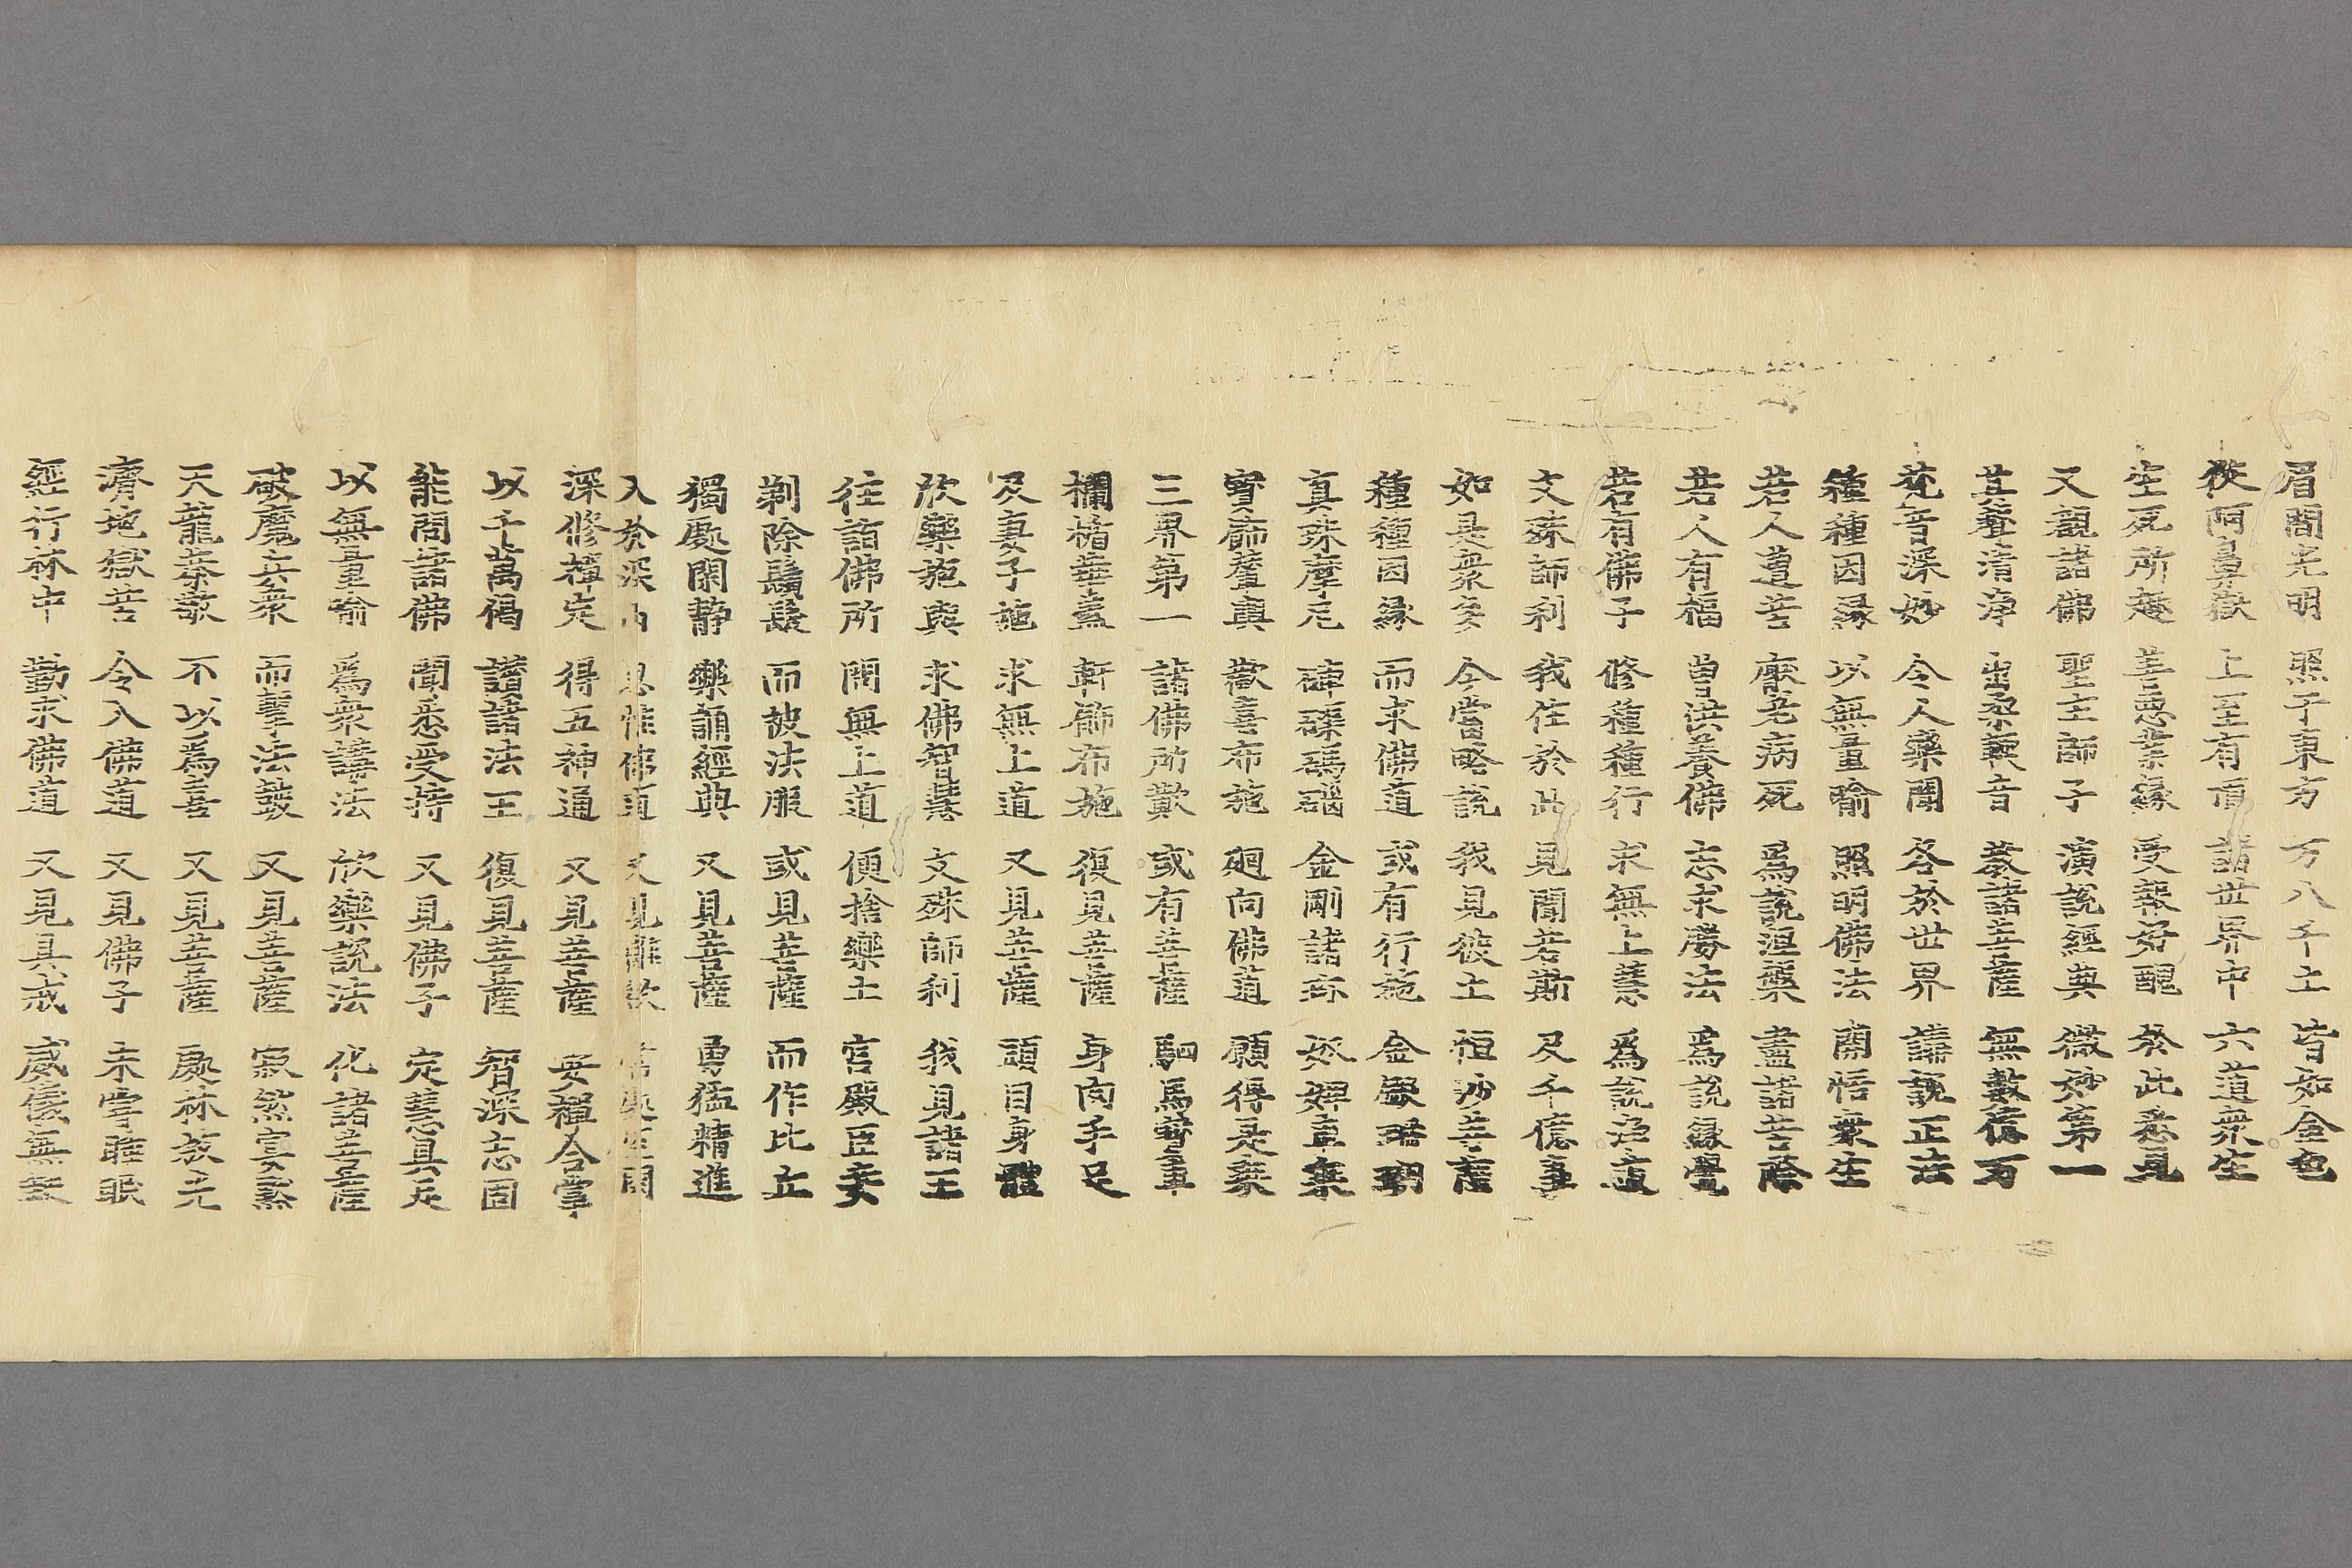 眉間光明 照于東方 万八千土 皆如金色
從阿鼻獄 上至有頂 諸世界中 六道衆生
生死所趣 善惡業緣 受報好醜 於此悉見
又覩諸佛 聖主師子 演說經典 微妙第一
其聲清淨 出柔軟音 教諸菩薩 無數億万
梵音深妙 令人樂聞 各於世界 講說正法
種種因緣 以無量喻 照明佛法 開悟衆生
若人遭苦 厭老病死 爲說涅槃 盡諸苦際
若人有福 曾供養佛 志求勝法 爲說緣覺
若有佛子 修種種行 求無上慧 爲說淨道
文殊師利 我住於此 見聞若斯 及千億事
如是衆多 今當略說 我見彼土 恒沙菩薩
種種因緣 而求佛道 或有行施 金銀珊瑚
真珠摩尼 硨磲碼碯 金剛諸珎 奴婢車乘
寶飾輦輿 歡喜布施 廻向佛道 願得是乘
三界第一 諸佛所歎 或有菩薩 駟馬寶車
欄楯華蓋 軒飾布施 復見菩薩 身肉手足
及妻子施 求無上道 又見菩薩 頭目身體
欣樂施與 求佛智慧 文殊師利 我見諸王
往詣佛所 問無上道 便捨樂土 宮殿臣妾
剃除鬚髮 而被法服 或見菩薩 而作比丘
獨處閑靜 樂誦經典 又見菩薩 勇猛精進
入於深山 思惟佛道 又見離欲 常處空閑
深修禪定 得五神通 又見菩薩 安禪合掌
以千萬偈 讚諸法王 復見菩薩 智深志固
能問諸佛 聞悉受持 又見佛子 定慧具足
以無量喻 爲衆講法 欣樂說法 化諸菩薩
破魔兵衆 而擊法鼓 又見菩薩 寂然宴默
天龍恭敬 不以爲喜 又見菩薩 處林放光
濟地獄苦 令入佛道 又見佛子 未甞睡眠
經行林中 懃求佛道 又見具戒 威儀無缺